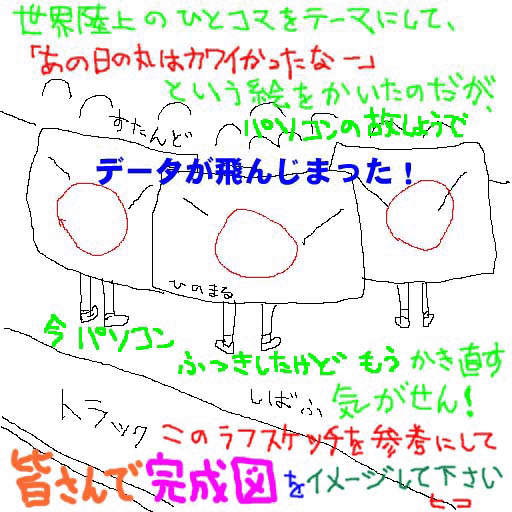 世界陸上のひとコマをテーマにして、
「あの日の丸はカワイかったなー」
という絵をかいたのだが、
すたんど
パソコンの故しょうで
データが飛んじまった！
ひのまる
今パソコン
ふっきしたけど もう かき直す
気がせん！
しばふ
トラック
このラフスケッチを参考にして
皆さんで完成図をイメージして下さい
ヒコ